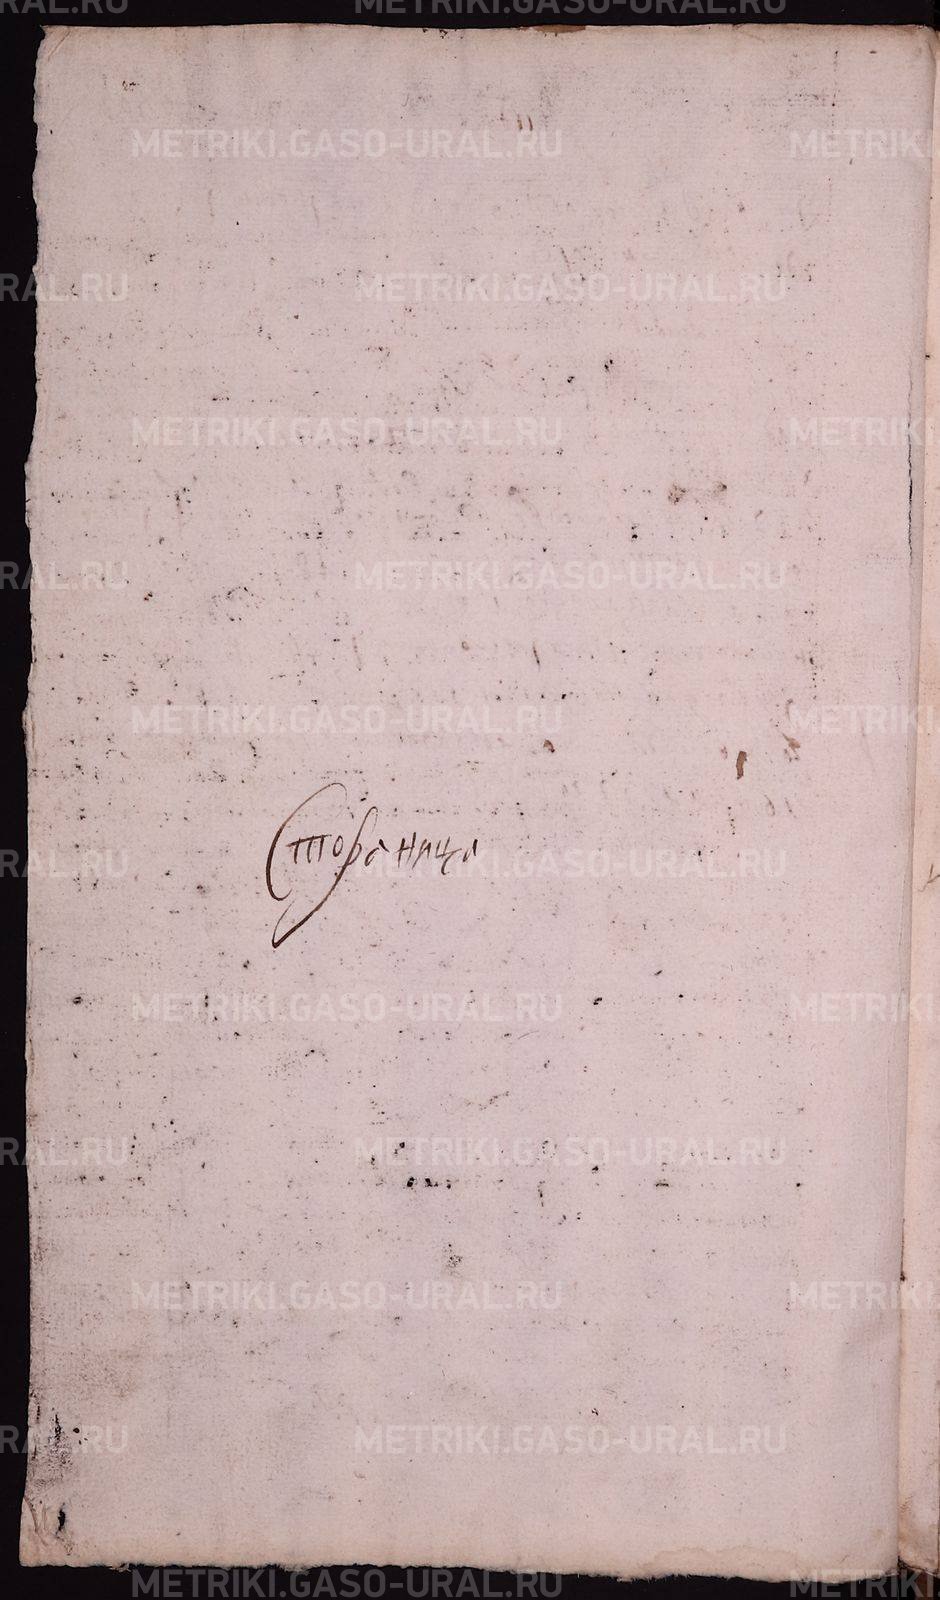 RAL.RU METRIKI.GASO-URAL.RU
METRIKI.GASO-URAL.RU METRIKI
RAL.RU METRIKI.GASO-URAL.RU
METRIKI.GASO-URAL.RU METRIKI
RAL.RU METRIKI.GASO-URAL.RU
METRIKI.GASO-URAL.RU METRIKI
Стораница
RAL.RU METRIKI.GASO-URAL.RU
METRIKI.GASO-URAL.RU METRIKI
RAL.RU METRIKI.GASO-URAL.RU
METRIKI.GASO-URAL.RU METRIKI
RAL.RU METRIKI.GASO-URAL.RU
METRIKI.GASO-URAL.RU METRIKI